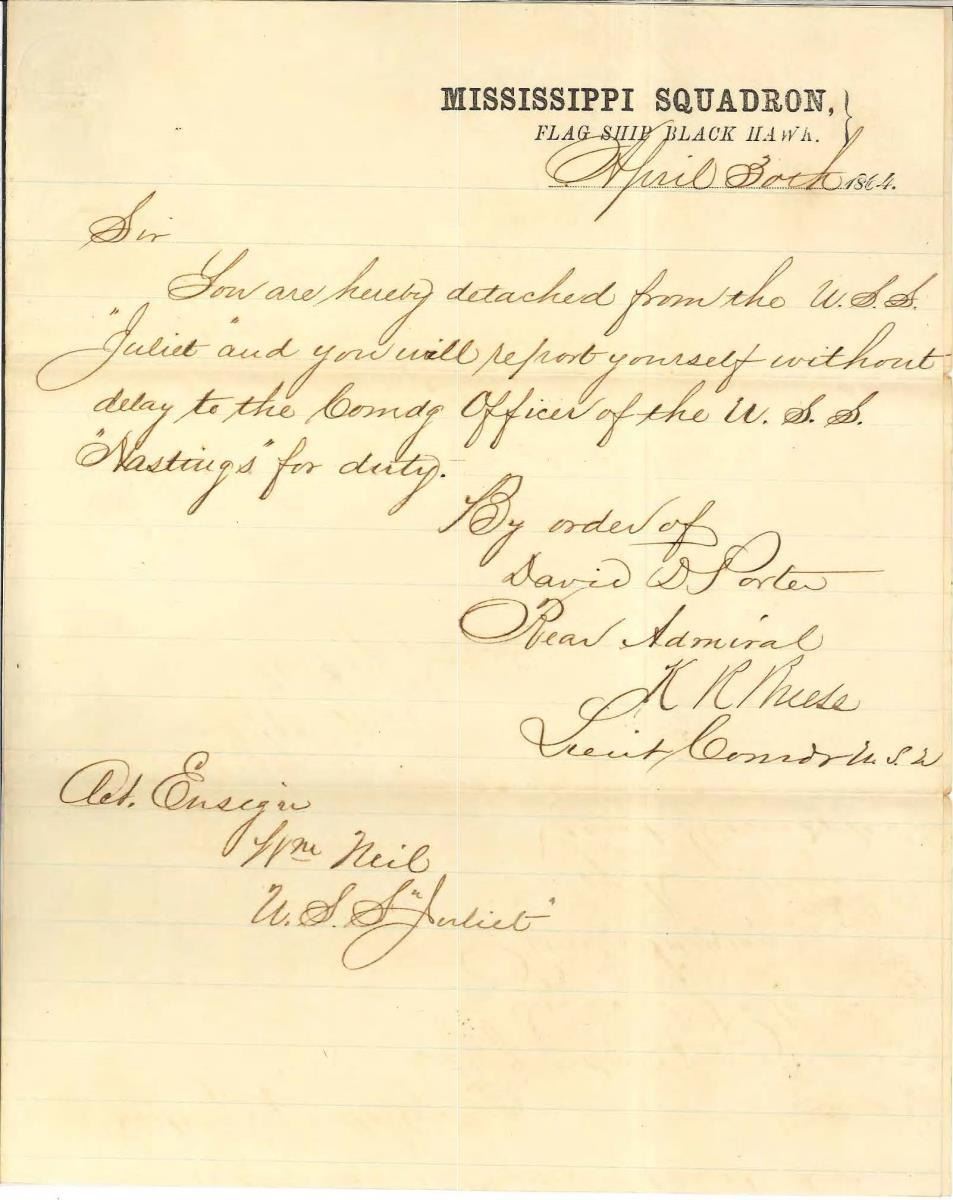 MISSISSIPPI SQUADRON,
FLAG SHIP BLACK HAWK.
April 30th 1864.
Sir
You are hereby detached from the U.S.S.
"Juliet" and you will report yourself without
delay to the Comdg Officer of the U. S. S.
"Hastings" for duty.
By order of
David D. Porter
Rear Admiral
K R Breese
Lieut Comdr U.S.N
Act. Ensign
Wm Neil
U. S. S "Juliet"